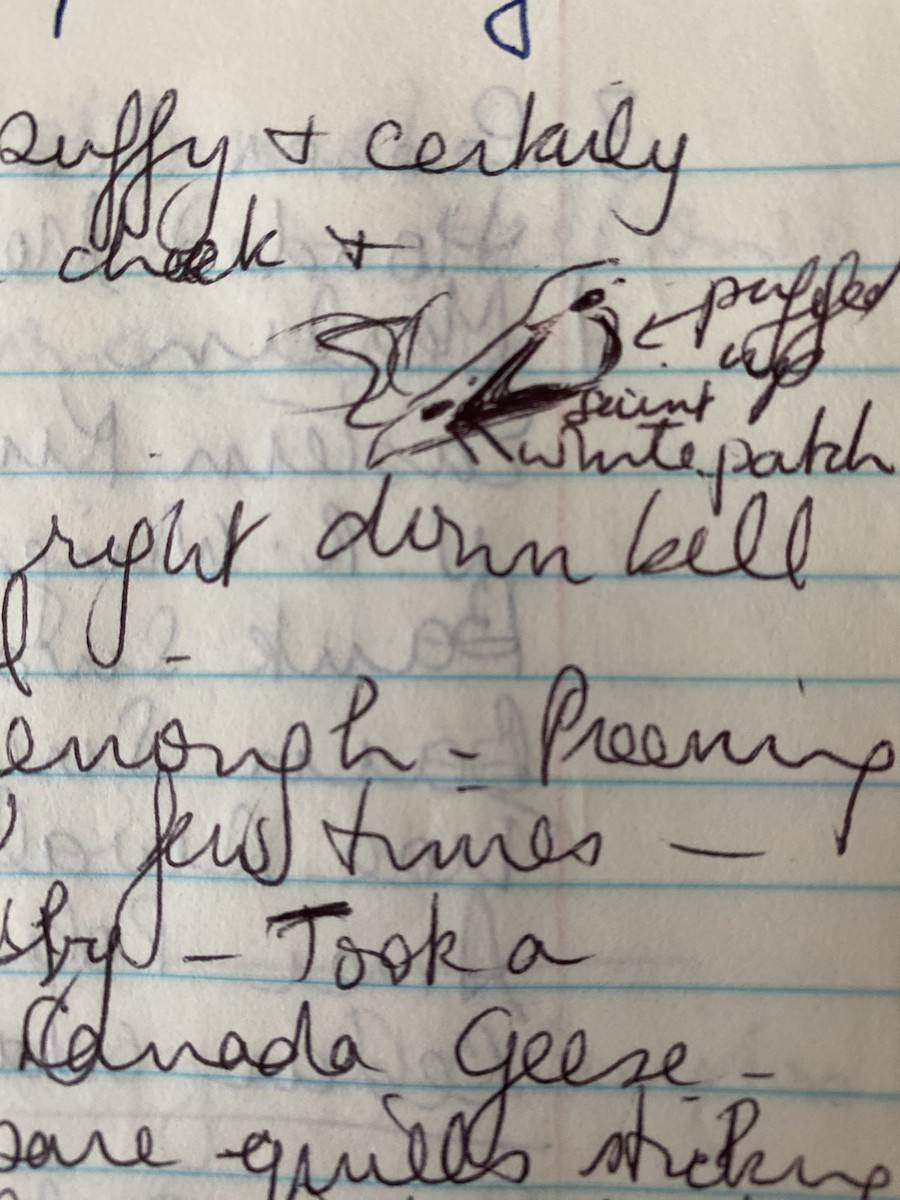 puffy + certainly
cheek +
← puffed
up
faint
white patch
right down bell
enough - Preening
few times —
- Took a
Canada Geese -
bare quills sticking